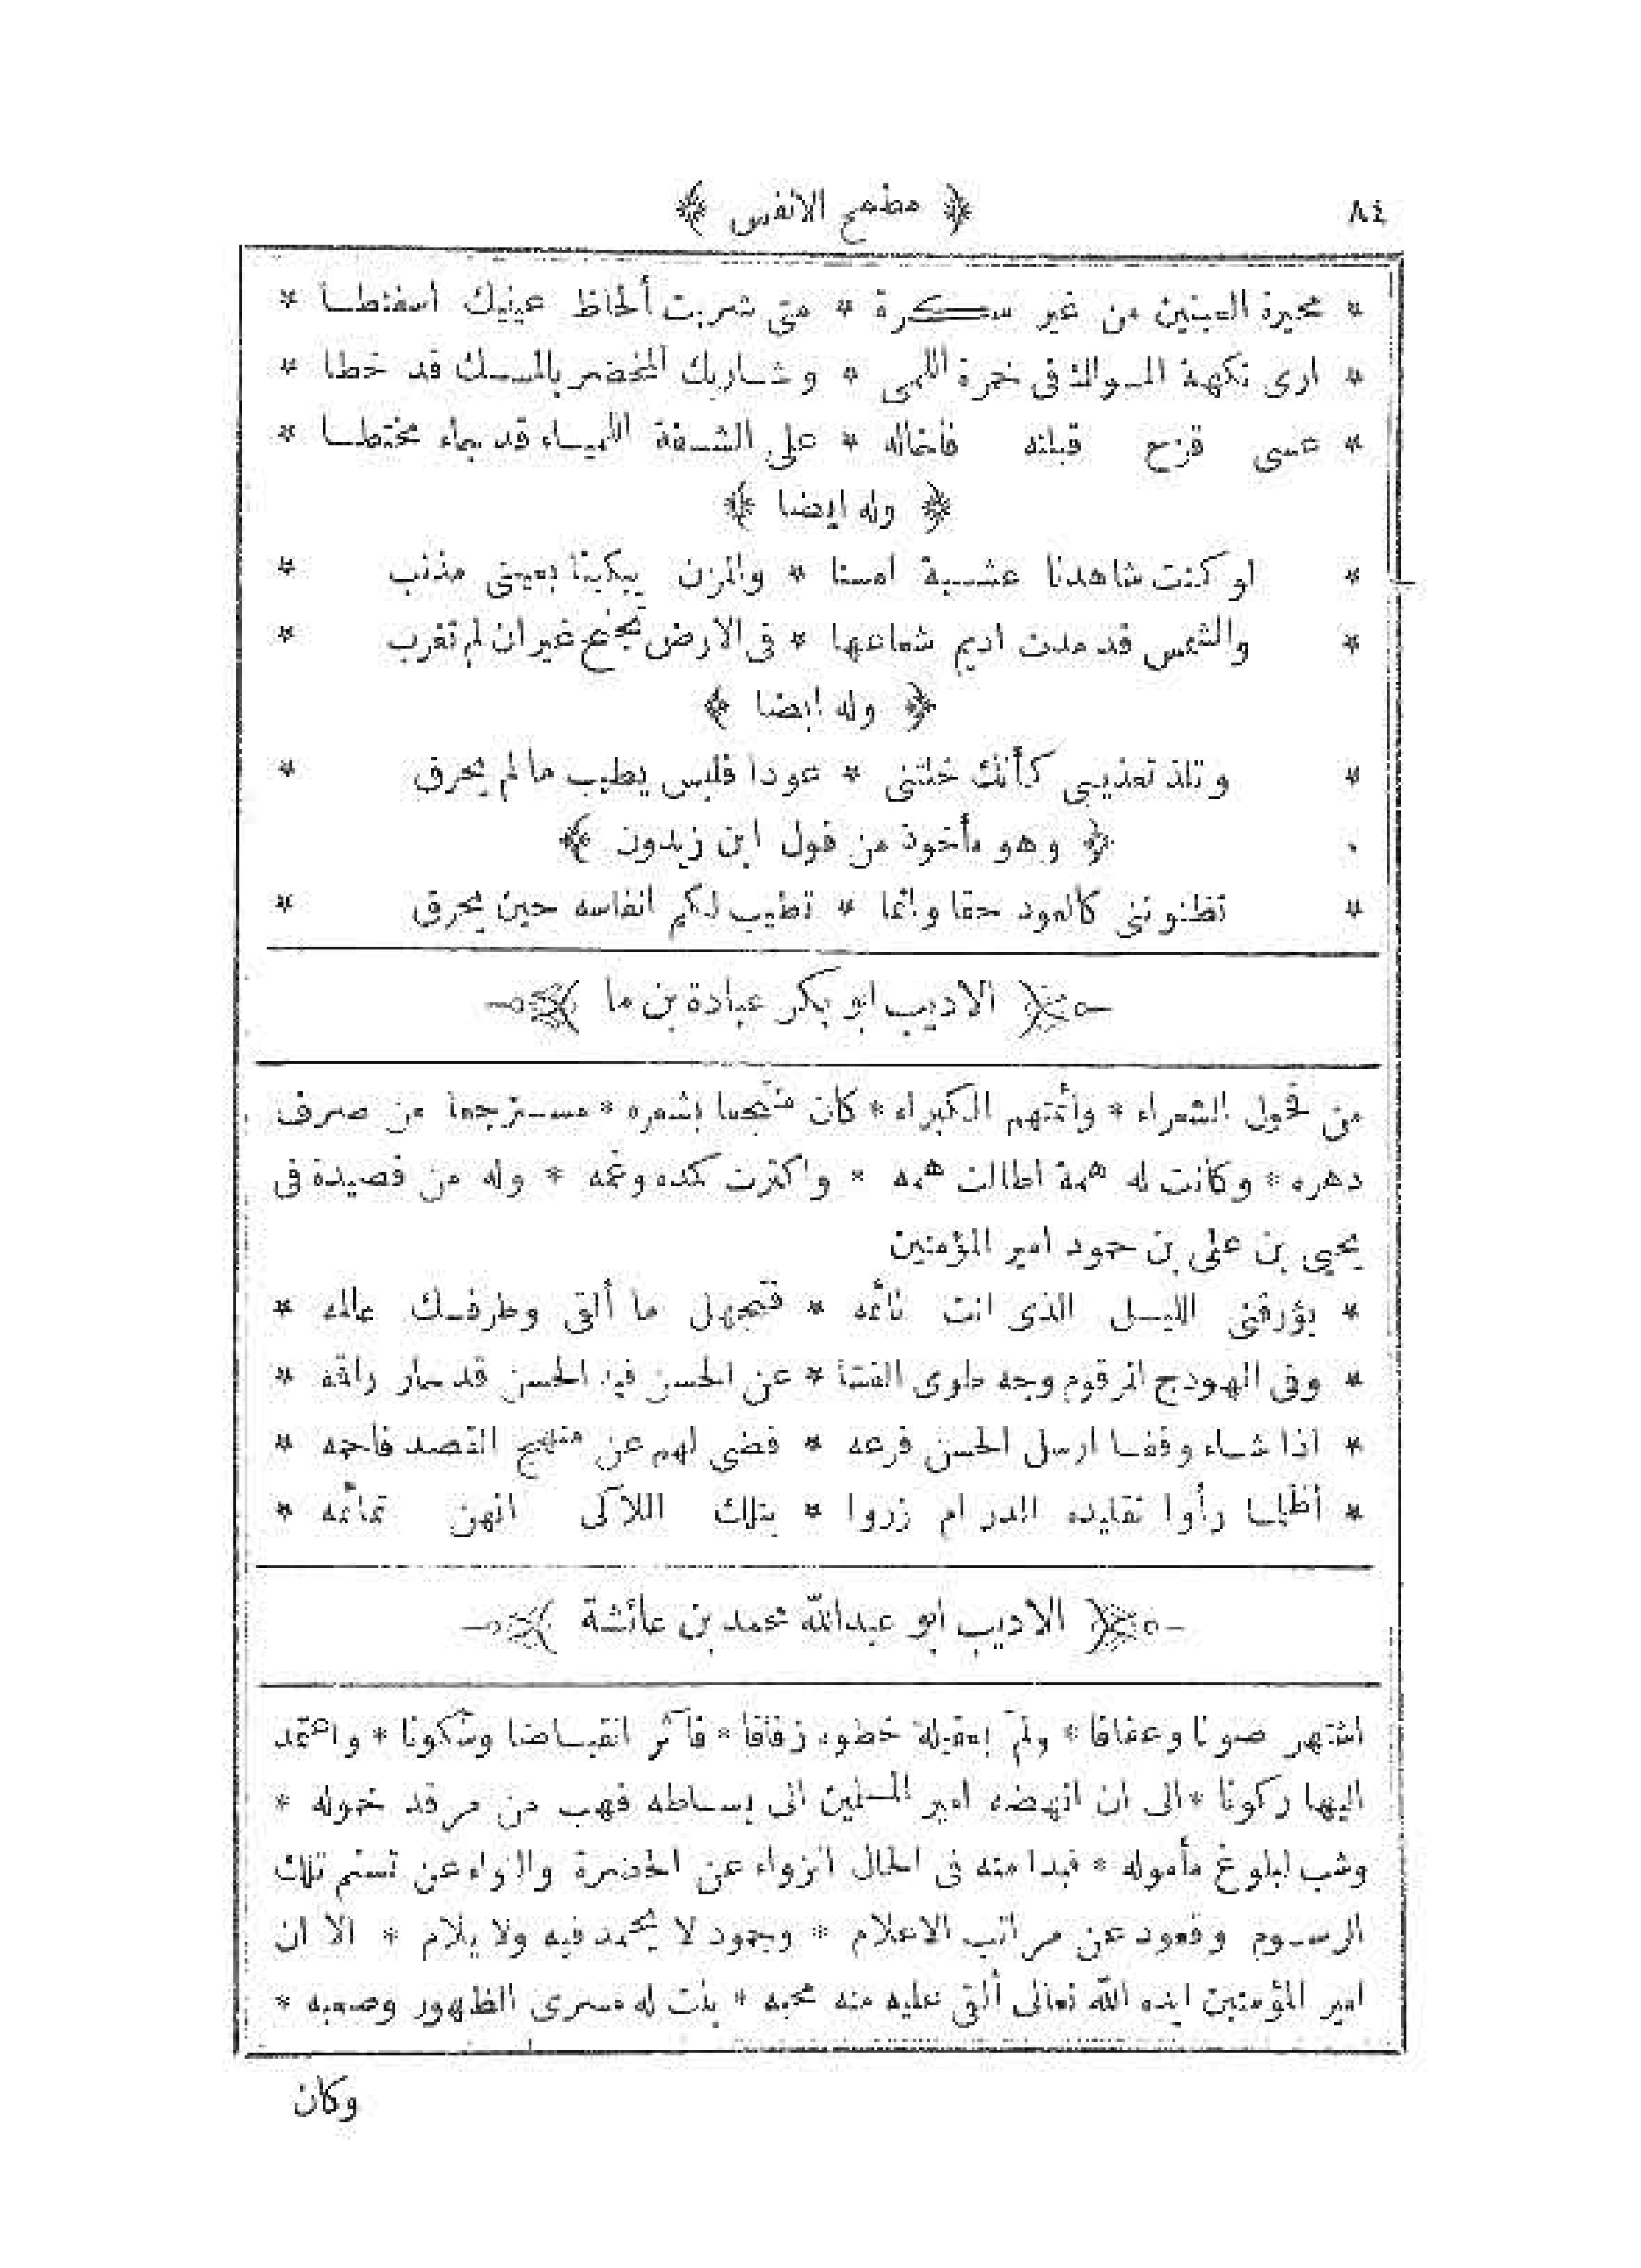 ٨٤ ﴿ مطمح الانفس ﴾
* محيرة العينين من غير سكرة * متى شربت ألحاظ عينيك اسفنطا *
* ارى نكهة المسواك فى خمرة اللمى * وشاربك المخضر بالمسك قد خطا *
* عسى قزح قبلته فاخاله * على الشفة اللمياء قد جاء مختطا *
﴿ وله ايضا ﴾
* لو كنت شاهدنا عشية امسنا * والمزن يبكينا بعينى مذنب *
* والشمس قد مدت اديم شعاعها * فى الارض تجنح غير ان لم تغرب *
﴿ وله ايضا ﴾
* وتلذ تعذيبى كأنك خلتنى * عودا فليس يطيب مالم يحرق *
﴿ وهو مأخوذ من قول ابن زيدون ﴾
* تظنوننى كالعود حقا وانما * تطيب لكم انفاسه حين يحرق *
﴿ الاديب ابو بكر عبادة بن ما ﴾
من فحول الشعراء * وأئمتهم الكبراء * كان منتجعا بشعره * مسترجعا من صرف
دهره * وكانت له همة اطالت همه * واكثرت كمده وغمه * وله من قصيدة فى
يحيى بن على بن حمود امير المؤمنين
* يؤرقنى الليل الذى انت نائمه * فتجهل ما ألقى وطرفك عالمه *
* وفى الهودج المرقوم وجه طوى الفتنا * عن الحسن فيه الحسن قد حار راقمه *
* اذا شاء وقفا ارسل الحسن فرعه * فضى لهم عن منهج القصد فاحمه *
* أظلما رأوا تقليده الدر ام زروا * بتلك اللآلى انهن تمائمه *
﴿ الاديب ابو عبدالله محمد بن عائشة ﴾
اشتهر صونا وعفافا * ولم بعقيلة خطوه زفافا * فآثر انقباضا وسكونا * واعتمد
اليها ركونا * الى ان انهضه امير المسلمين الى بساطه فهب من مرقد خموله *
وشب لبلوغ مأموله * فبدا منه فى الحال انزواء عن الحضرة والتواء عن تسنم تلك
الرسوم وقعود عن مراتب الاعلام * وجمود لا يحمد فيه ولا يلام * الا ان
امير المؤمنين ايده الله تعالى ألقى عليه منه محبه * يلت له مسرى الظهور وصعبه *
وكان